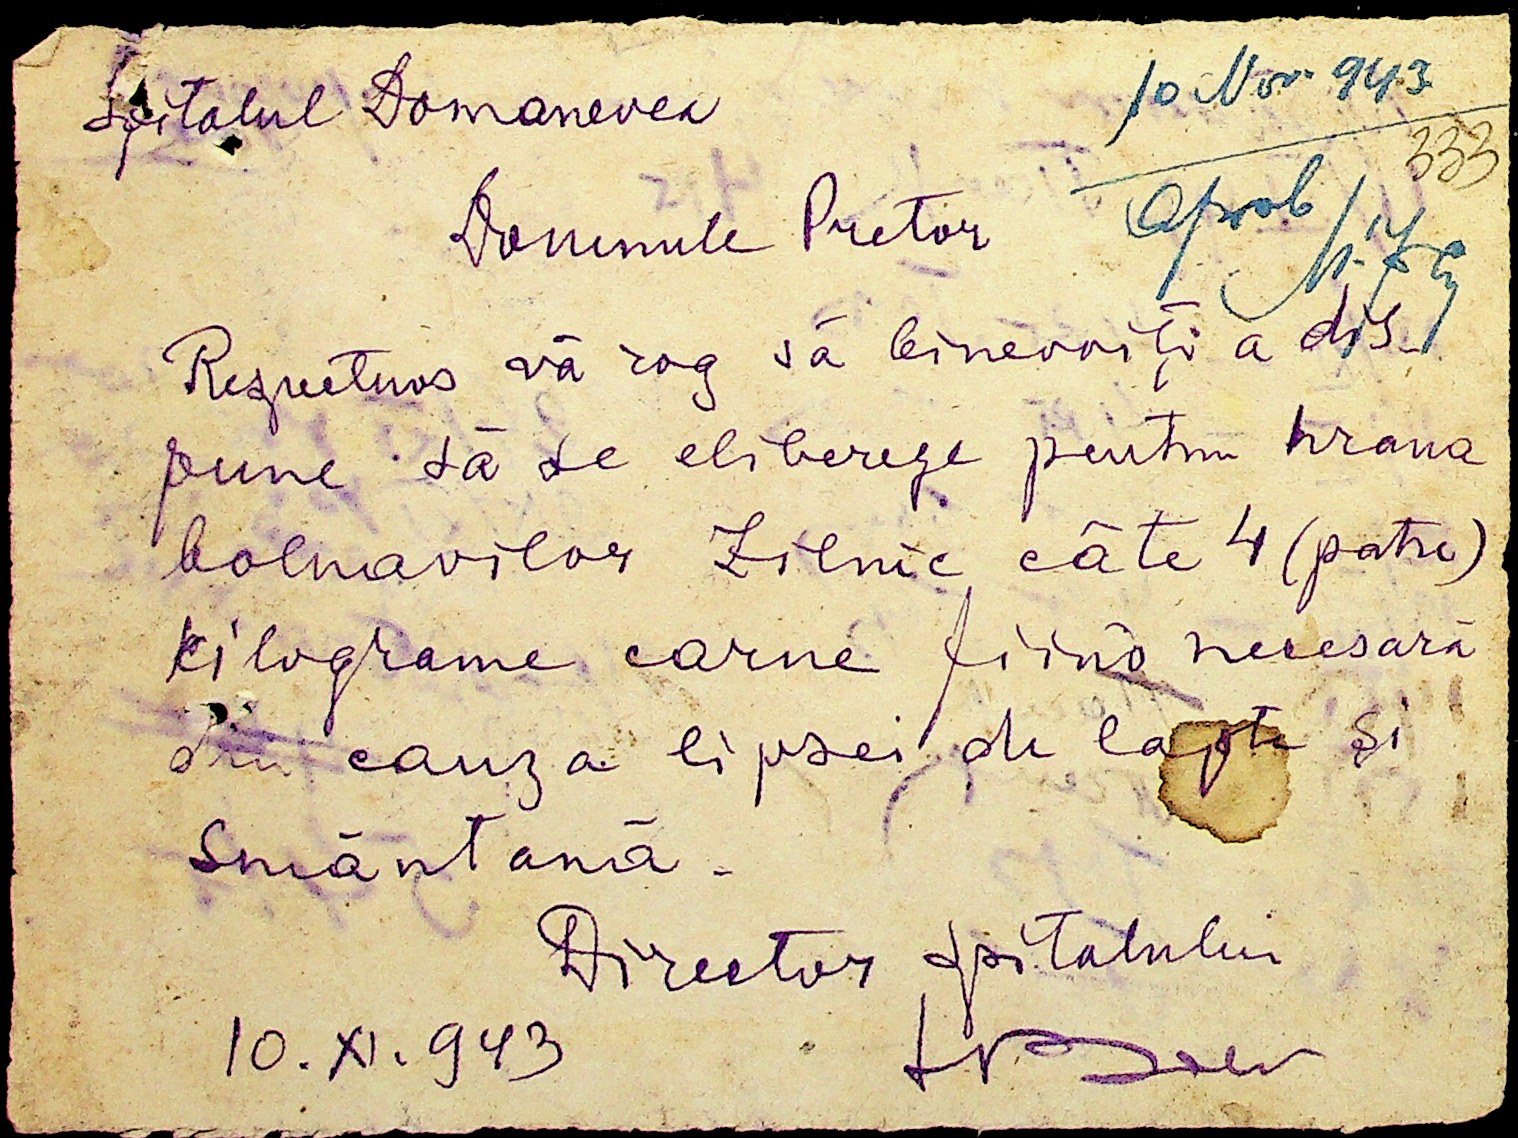 Spitalul Domanevca
10 Nov. 943
333
Aprob
Domnule Pretor
Respectuos vă rog să binevoiți a dis-
pune să se elibereze pentru hrana
bolnavilor Zilnic câte 4 (patru)
kilograme carne fiind necesară
din cauza lipsei de lapte și
Smântană.
Director spitalului
10. XI. 943